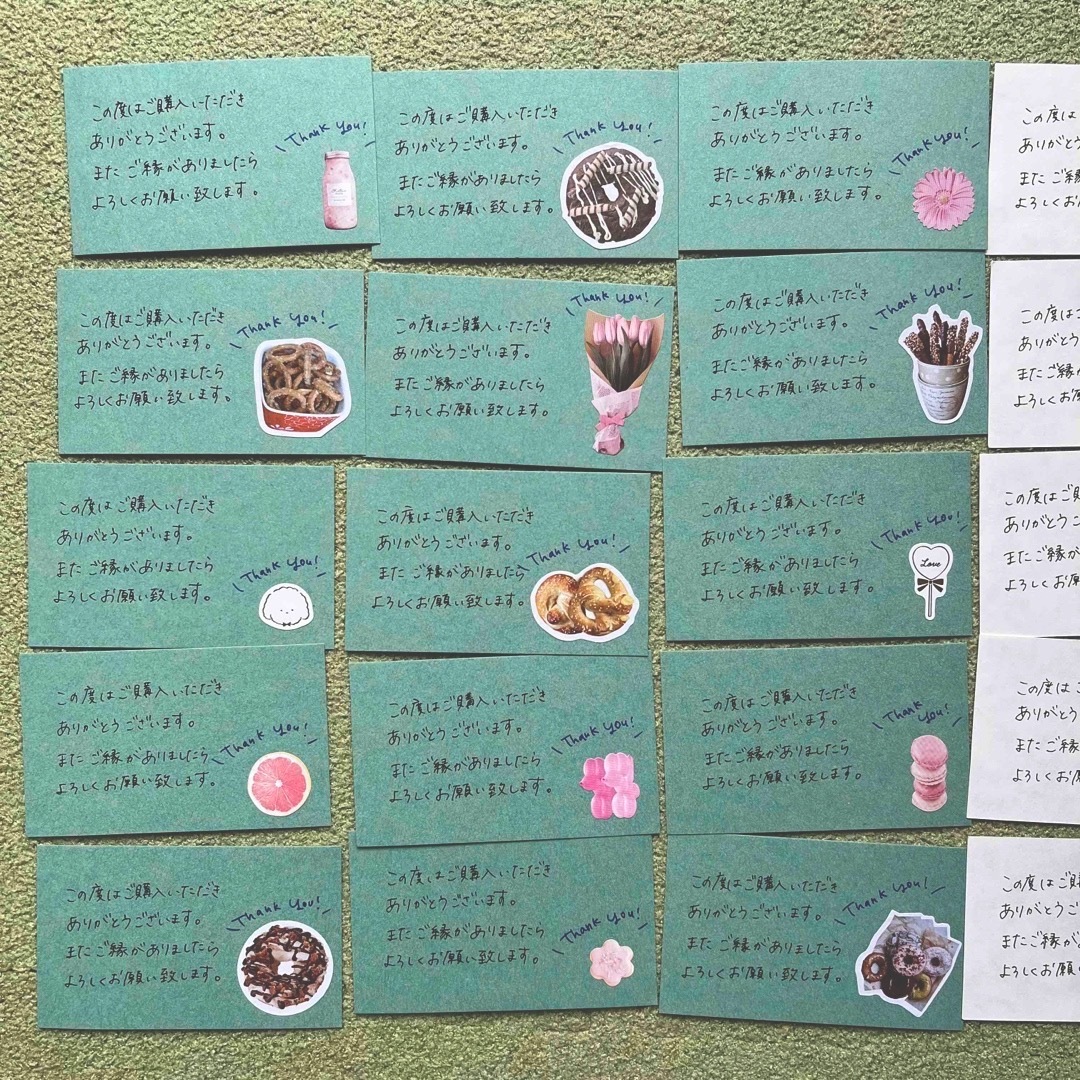 この度はご購入いただき
ありがとうございます。
またご縁がありましたら
よろしくお願い致します。
Thank you!
この度はご購入いただき
ありがとうございます。
またご縁がありましたら
よろしくお願い致します。
Thank you!
この度はご購入いただき
ありがとうございます。
またご縁がありましたら
よろしくお願い致します。
Thank you!
この度は
ありがとう
またご縁
よろしくお
この度はご購入いただき
ありがとうございます。
またご縁がありましたら
よろしくお願い致します。
Thank you!
この度はご購入いただき
ありがとうございます。
またご縁がありましたら
よろしくお願い致します。
Thank you!
この度はご購入いただき
ありがとうございます。
またご縁がありましたら
よろしくお願い致します。
Thank you!
この度はご
ありがとう
またご縁
よろしくお
この度はご購入いただき
ありがとうございます。
またご縁がありましたら
よろしくお願い致します。
Thank you!
この度はご購入いただき
ありがとうございます。
またご縁がありましたら
よろしくお願い致します。
Thank you!
この度はご購入いただき
ありがとうございます。
またご縁がありましたら
よろしくお願い致します。
Thank you!
Love
この度はご購
ありがとうご
またご縁が
よろしくお願
この度はご購入いただき
ありがとうございます。
またご縁がありましたら
よろしくお願い致します。
Thank you!
この度はご購入いただき
ありがとうございます。
またご縁がありましたら
よろしくお願い致します。
Thank you!
この度はご購入いただき
ありがとうございます。
またご縁がありましたら
よろしくお願い致します。
Thank you!
この度はご
ありがとう
またご縁
よろしくお
この度はご購入いただき
ありがとうございます。
またご縁がありましたら
よろしくお願い致します。
Thank you!
この度はご購入いただき
ありがとうございます。
またご縁がありましたら
よろしくお願い致します。
Thank you!
この度はご購入いただき
ありがとうございます。
またご縁がありましたら
よろしくお願い致します。
Thank you!
この度はご購
ありがとうご
またご縁が
よろしくお願